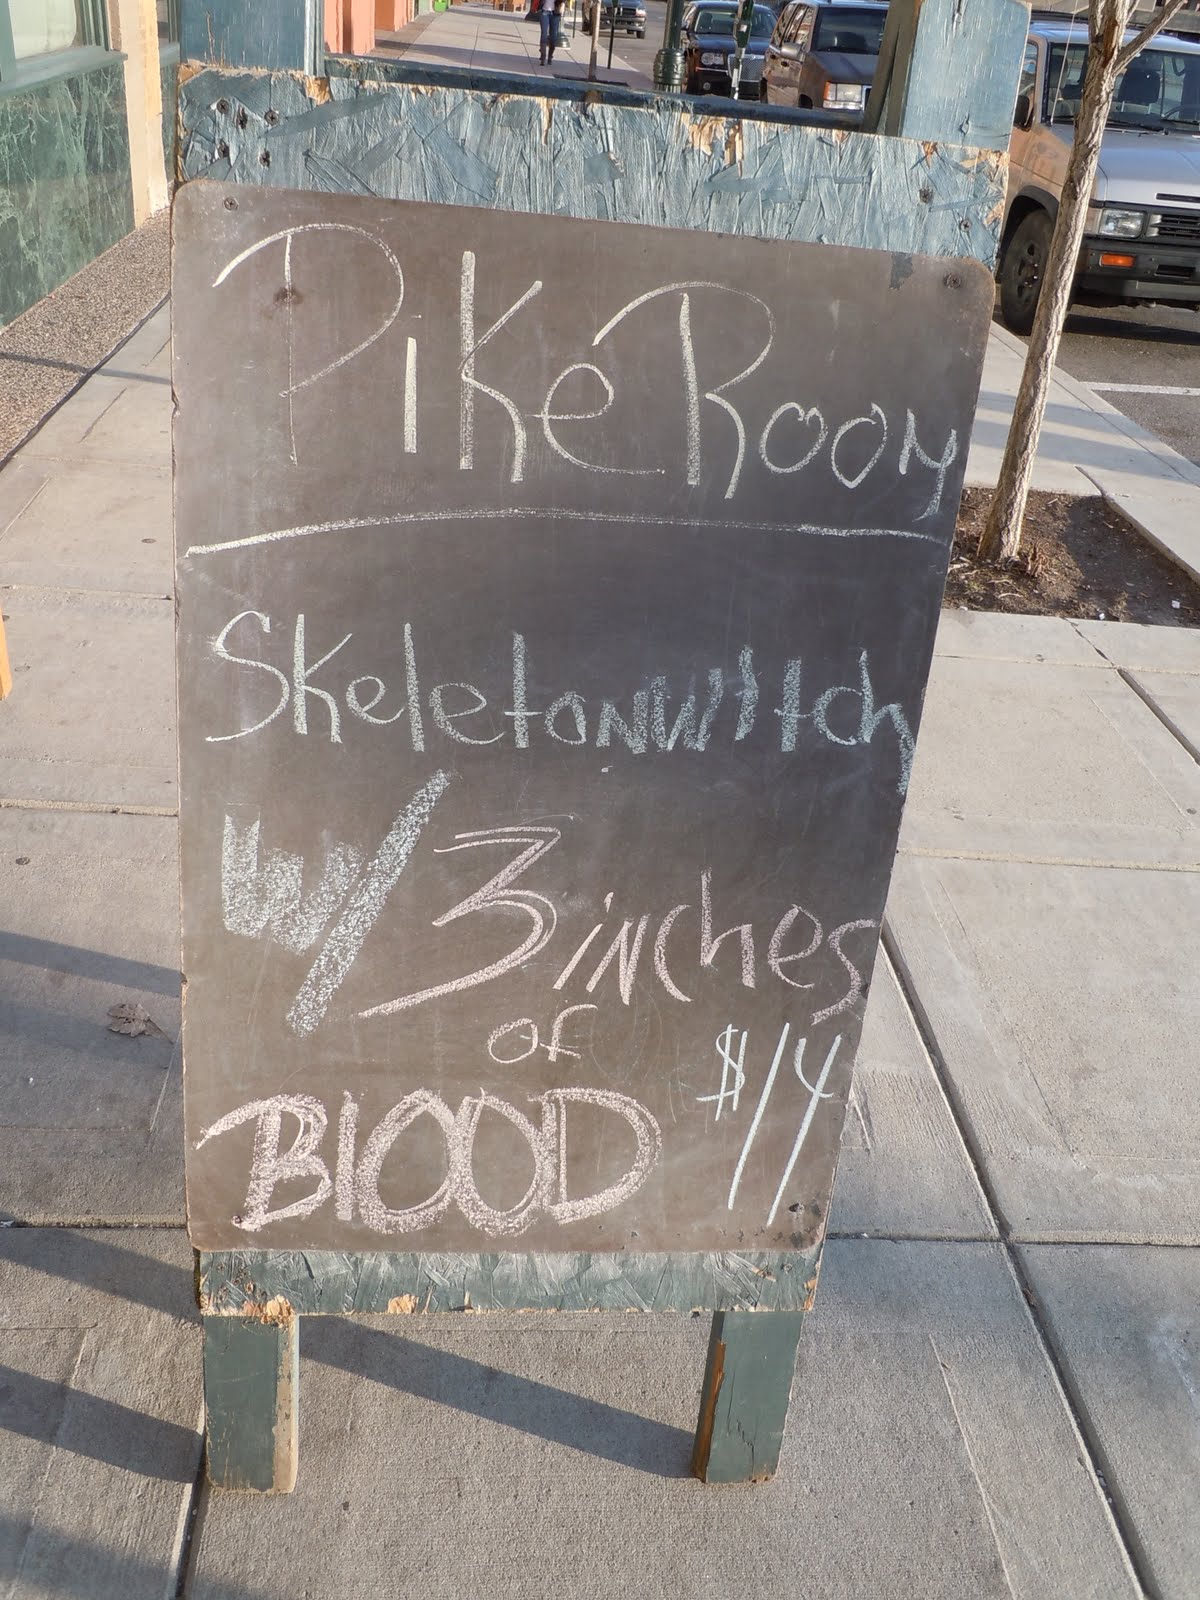 Pike Room
Skeletonwitch
w/ 3 inches
of
BlOOD $14